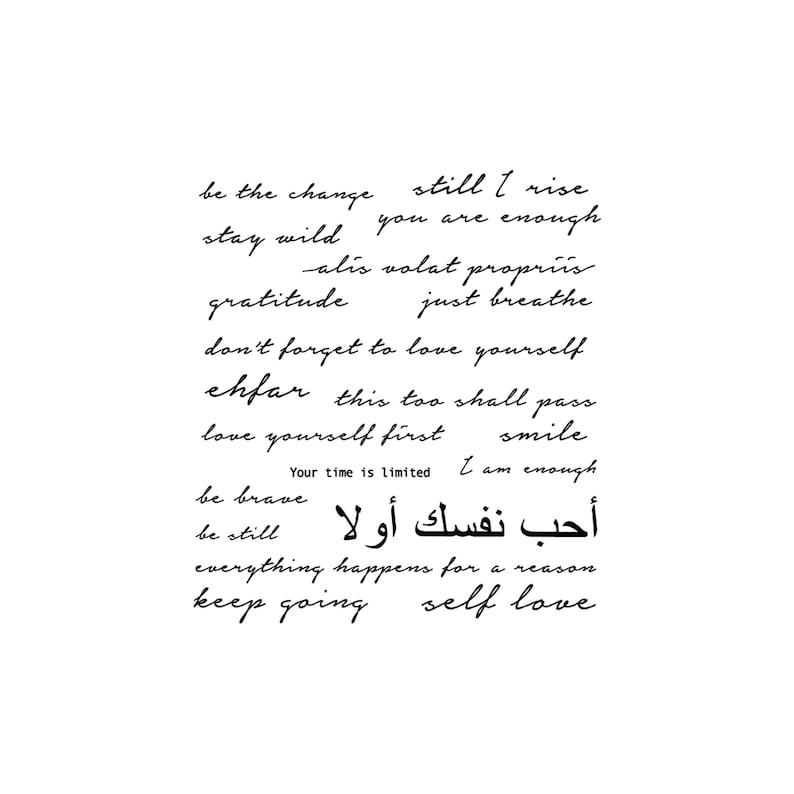 be the change
still I rise
you are enough
stay wild
alis volat propriis
gratitude
just breathe
don't forget to love yourself
ehfar
this too shall pass
love yourself first
smile
Your time is limited
I am enough
be brave
أحب نفسك أولا
be still
everything happens for a reason
keep going
self love